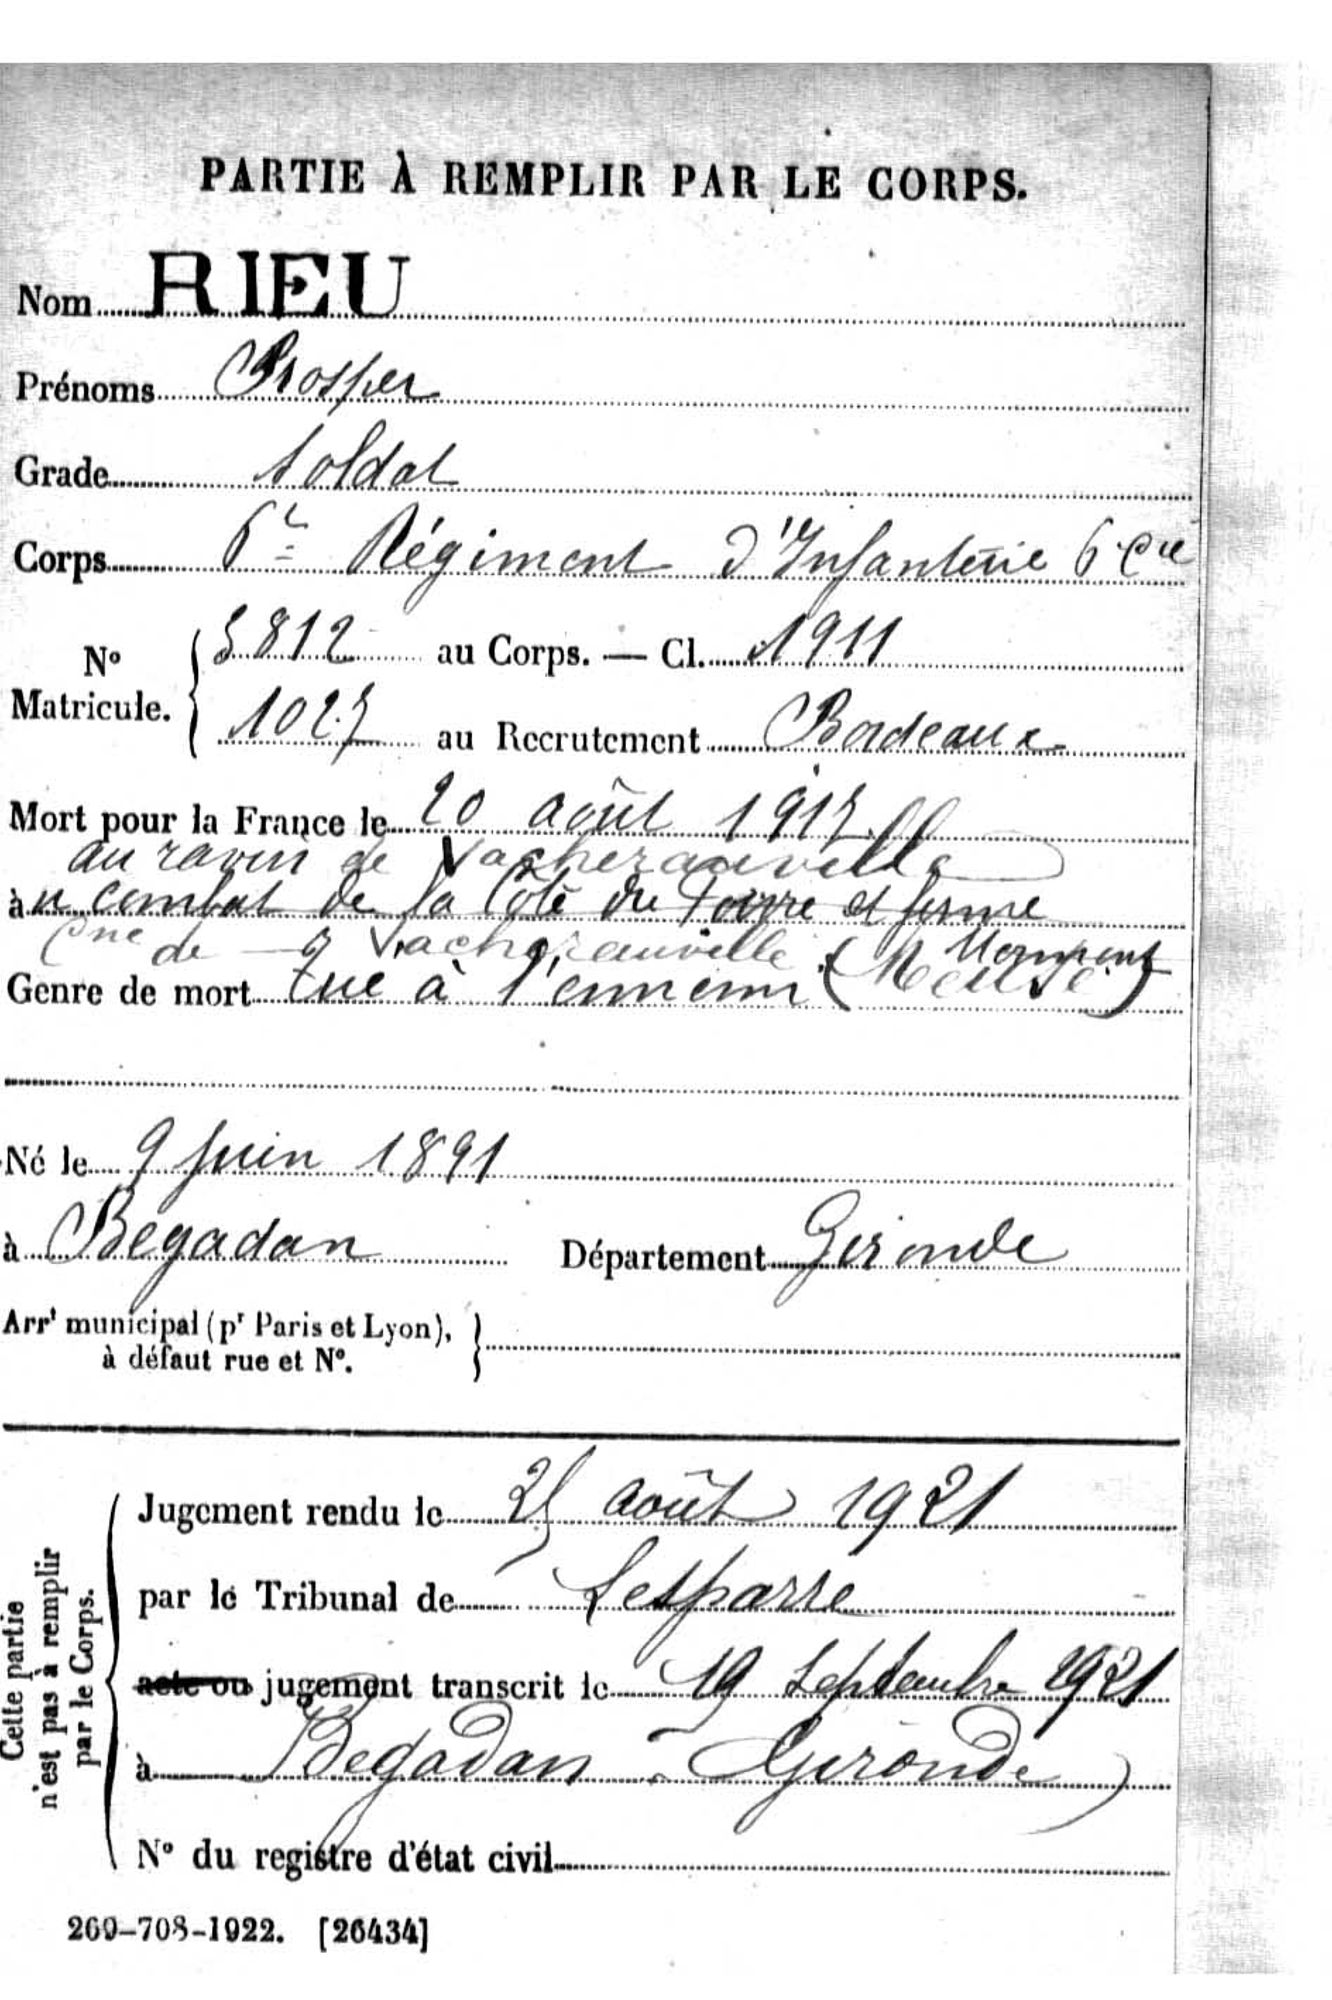 PARTIE À REMPLIR PAR LE CORPS.
Nom RIEU
Prénoms Prosper
Grade Soldat
Corps 6e Régiment d'Infanterie 6 Cie
No Matricule. 5812 au Corps. — Cl. 1911
1025 au Recrutement Bordeaux
Mort pour la France le 20 août 1917
au ravin de Vacherauville
à u combat de la Côte du Poivre et ferme
Cne de Vacherauville (Meuse)
Genre de mort tué à l'ennemi
Né le 9 Juin 1891
à Begadan Département Gironde
Arrt municipal (pr Paris et Lyon),
à défaut rue et No.
Cette partie
n'est pas à remplir
par le Corps.
Jugement rendu le 25 août 1921
par le Tribunal de Lesparre
acte ou jugement transcrit le 19 Septembre 1921
à Begadan - Gironde)
No du registre d'état civil
269-708-1922. [26434]